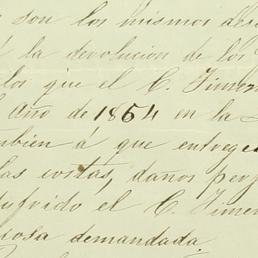 son los mismos
á la devolucion de los
los que el C. Jimen
Año de 1864 en la
tambien á que entregue
las costas, danos perj
sufrido el C. Jimen
cosa demandada.